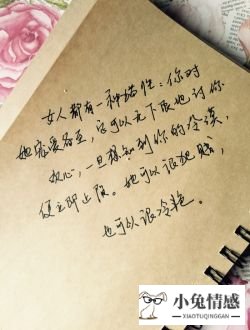 女人都有一种猫性：你对
她宠爱备至，它可以无下限地讨你
欢心，一旦揣知到你的冷漠，
便立即止限。她可以很艳贱，
也可以很冷艳。
小兔情感
XIAOTUQINGGAN